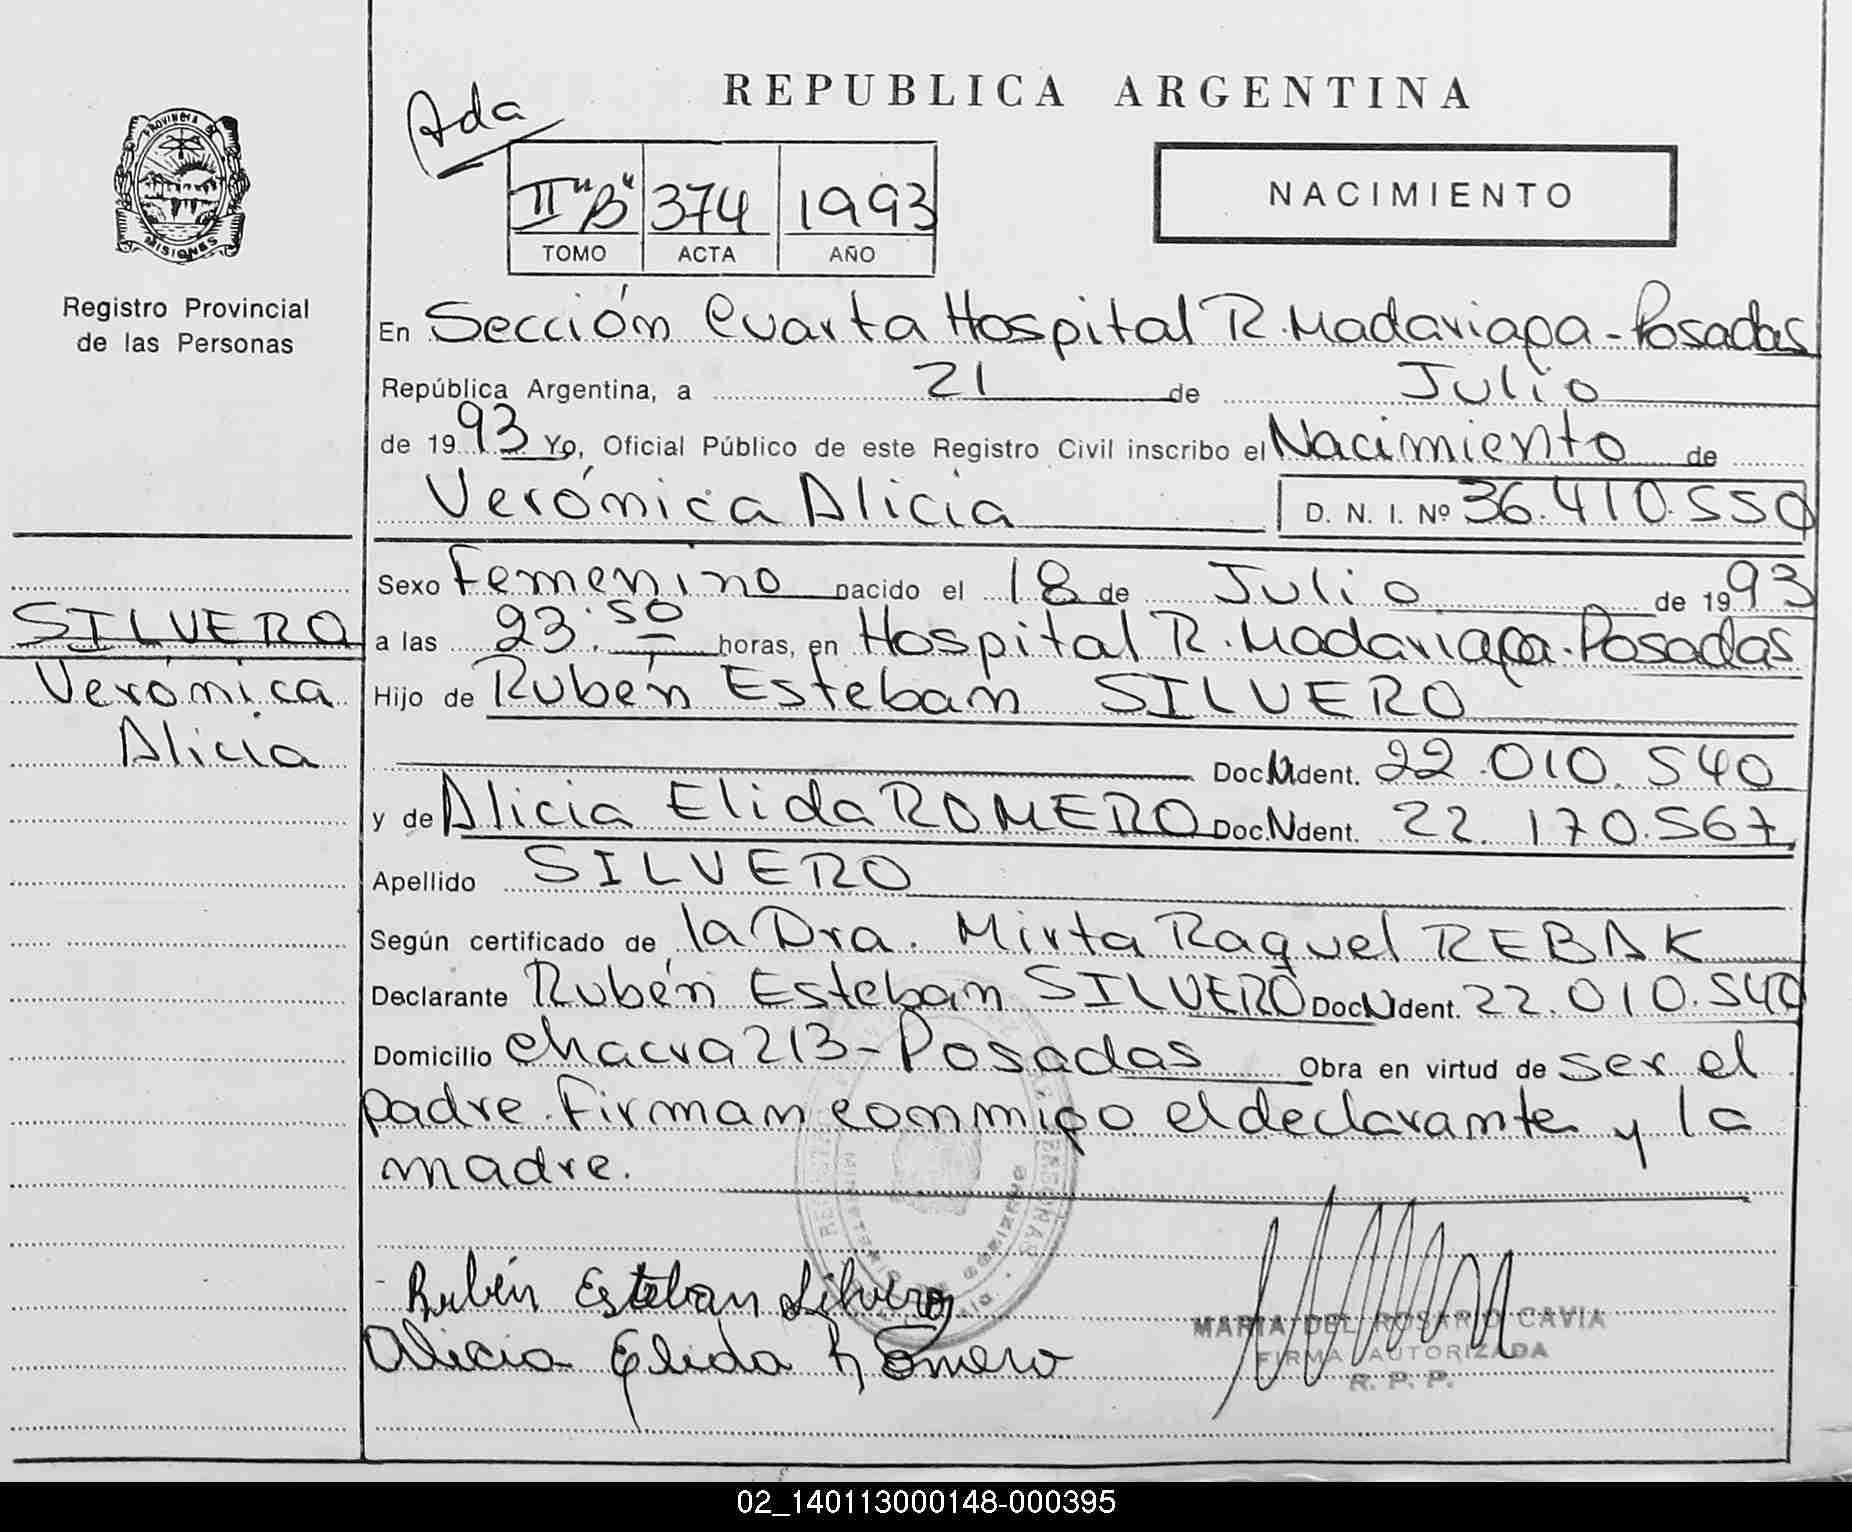 REPUBLICA ARGENTINA
Ada
PROVINCIA DE
MISIONES
Registro Provincial
de las Personas
II "B" 374 1993
TOMO ACTA AÑO
NACIMIENTO
En Sección Cuarta Hospital R. Madariaga - Posadas
República Argentina, a 21 de Julio
de 1993 Yo, Oficial Público de este Registro Civil inscribo el Nacimiento de
Verónica Alicia D. N. I. Nº 36.410.550
Sexo Femenino nacido el 18 de Julio de 1993
a las 23:50 horas, en Hospital R. Madariaga - Posadas
Hijo de Rubén Esteban SILVERO
Doc. N Ident. 22.010.540
y de Alicia Elida ROMERO Doc. N Ident. 22.170.567
Apellido SILVERO
Según certificado de la Dra. Mirta Raquel REBAK
Declarante Rubén Esteban SILVERO Doc. N Ident. 22.010.540
Domicilio chacra 213 - Posadas Obra en virtud de ser el
padre. Firman conmigo el declarante y la
madre.
SILVERO
Verónica
Alicia
Rubén Esteban Silvero
Alicia Elida Romero
MARIA DEL ROSARIO CAVIA
FIRMA AUTORIZADA
R. P. P.
02_140113000148-000395